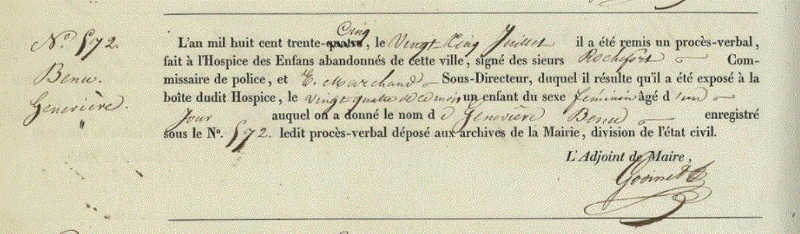 N.° 572.
Benu.
Genevière.
"
Cinq
L'an mil huit cent trente-quatre, le Vingt Cinq Juillet il a été remis un procès-verbal,
fait à l'Hospice des Enfans abandonnés de cette ville, signé des sieurs Rochefort Com-
missaire de police, et E. Marchand Sous-Directeur, duquel il résulte qu'il a été exposé à la
boîte dudit Hospice, le vingt quatre de ce mois un enfant du sexe féminin âgé d'un
Jour auquel on a donné le nom d e Genevière Benu enregistré
sous le N°. 572. ledit procès-verbal déposé aux archives de la Mairie, division de l'état civil.
L'Adjoint de Maire,